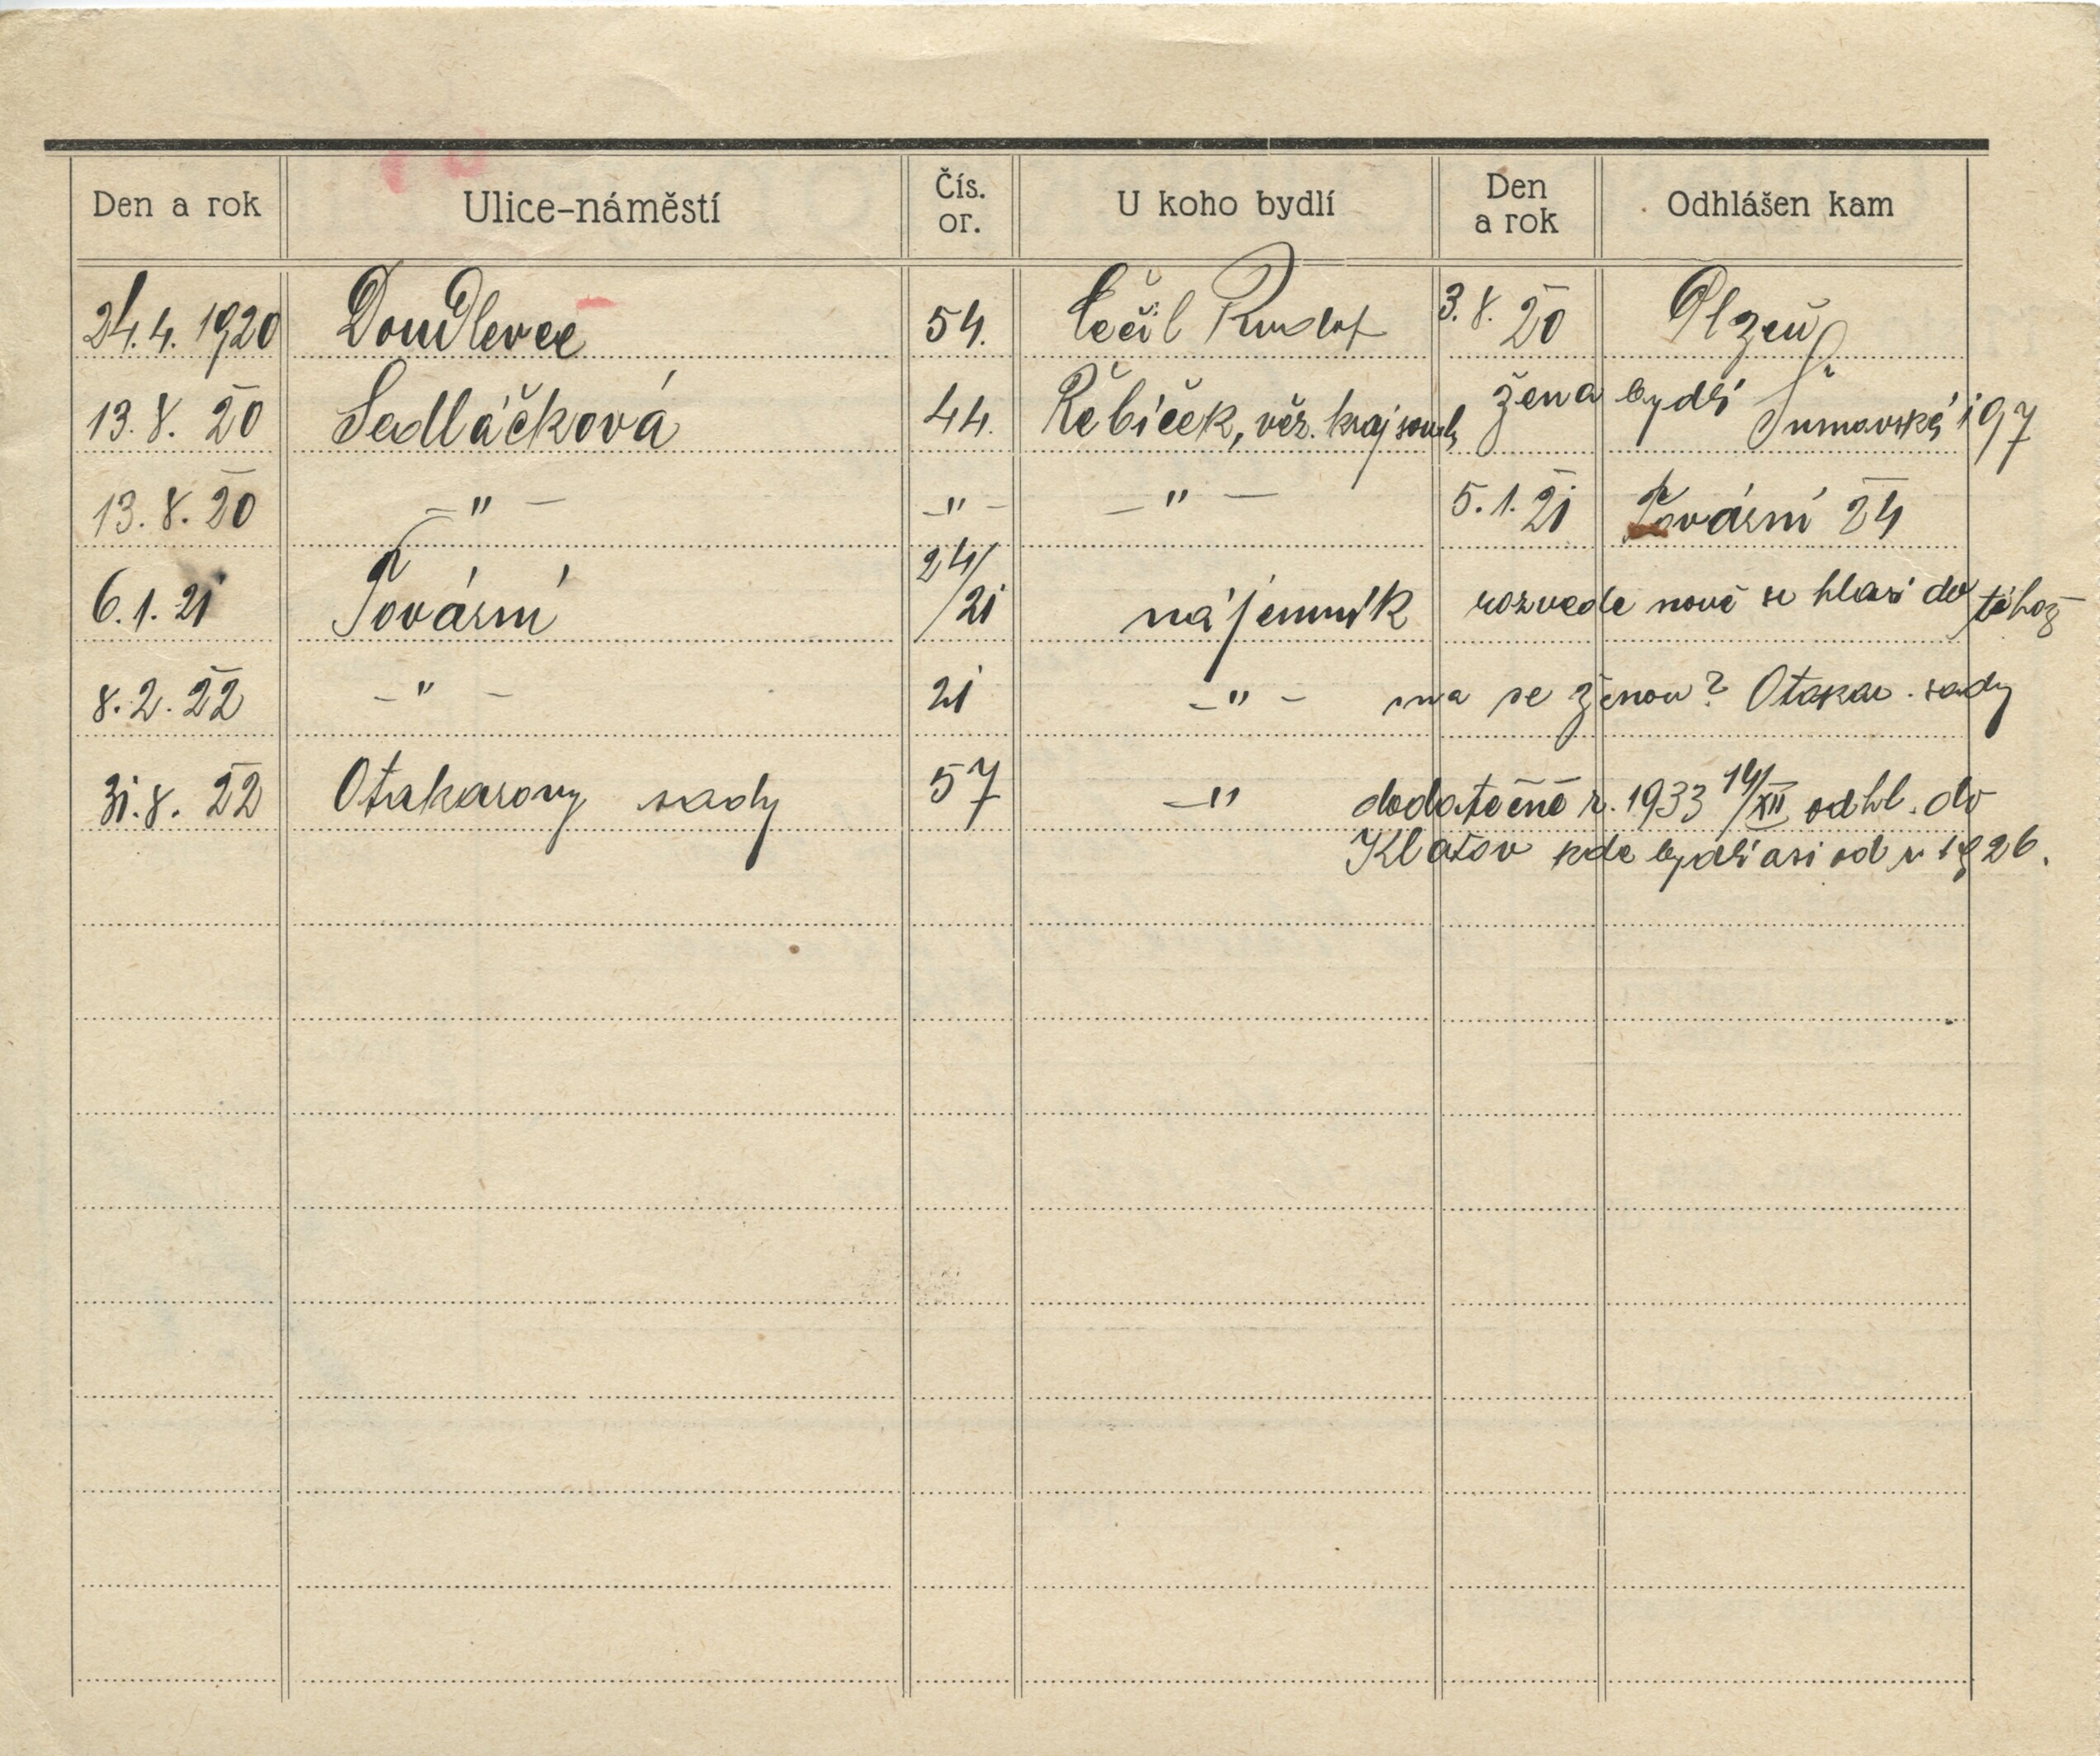 Den a rok Ulice-náměstí Čís. or. U koho bydlí Den a rok Odhlášen kam
24.4. 1920 Doudlevce 54. Rudolf 3.8. 20 Plzeň
13.8. 20 Sedláčková 44. Řebíček, věz. kraj soudu žena bydlí Šumavská 197
13.8.20 -"- -"- -"- 5.1.21 Tovární 24
6.1.21 Tovární 24/21 nájemník nově se hlásí do téhož
8.2.22 -"- 21 -"- má se ženou? Otakar. sady
31.8. 22 Otakarovy sady 57 -" dodatečně r. 1933 14/XII odhl. do
Klatov kde bydlí asi od r 1926.